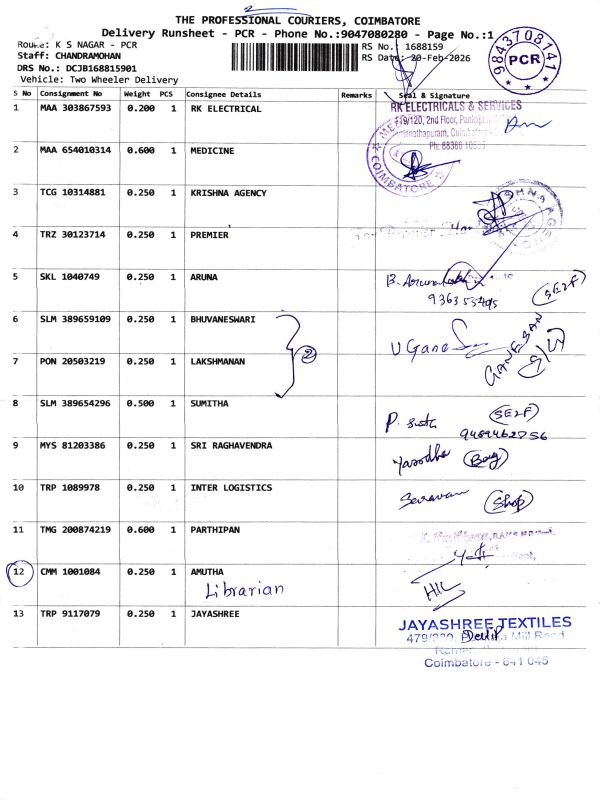 THE PROFESSIONAL COURIERS, COIMBATORE
Delivery Runsheet - PCR - Phone No.:9047080280 - Page No.:1
Route: K S NAGAR - PCR
RS No.: 1688159
Staff: CHANDRAMOHAN
RS Date: 20-Feb-2026
DRS No.: DCJB168815901
Vehicle: Two Wheeler Delivery
9843708141
PCR
S No Consignment No Weight PCS Consignee Details Remarks Seal & Signature
1 MAA 303867593 0.200 1 RK ELECTRICAL
RK ELECTRICALS & SERVICES
2nd Floor,
2 MAA 654010314 0.600 1 MEDICINE
COIMBATORE
3 TCG 10314881 0.250 1 KRISHNA AGENCY
4 TRZ 30123714 0.250 1 PREMIER
5 SKL 1040749 0.250 1 ARUNA
(SELF)
6 SLM 389659109 0.250 1 BHUVANESWARI
2
GANESAN
7 PON 20503219 0.250 1 LAKSHMANAN
8 SLM 389654296 0.500 1 SUMITHA
(SELF)
9489462756
9 MYS 81203386 0.250 1 SRI RAGHAVENDRA
Yasodha
10 TRP 1089978 0.250 1 INTER LOGISTICS
Saravan (Shop)
11 TMG 200874219 0.600 1 PARTHIPAN
12 CMM 1001084 0.250 1 AMUTHA
Librarian
H/C
13 TRP 9117079 0.250 1 JAYASHREE
JAYASHREE TEXTILES
Mill Road
Coimbatore - 641 045